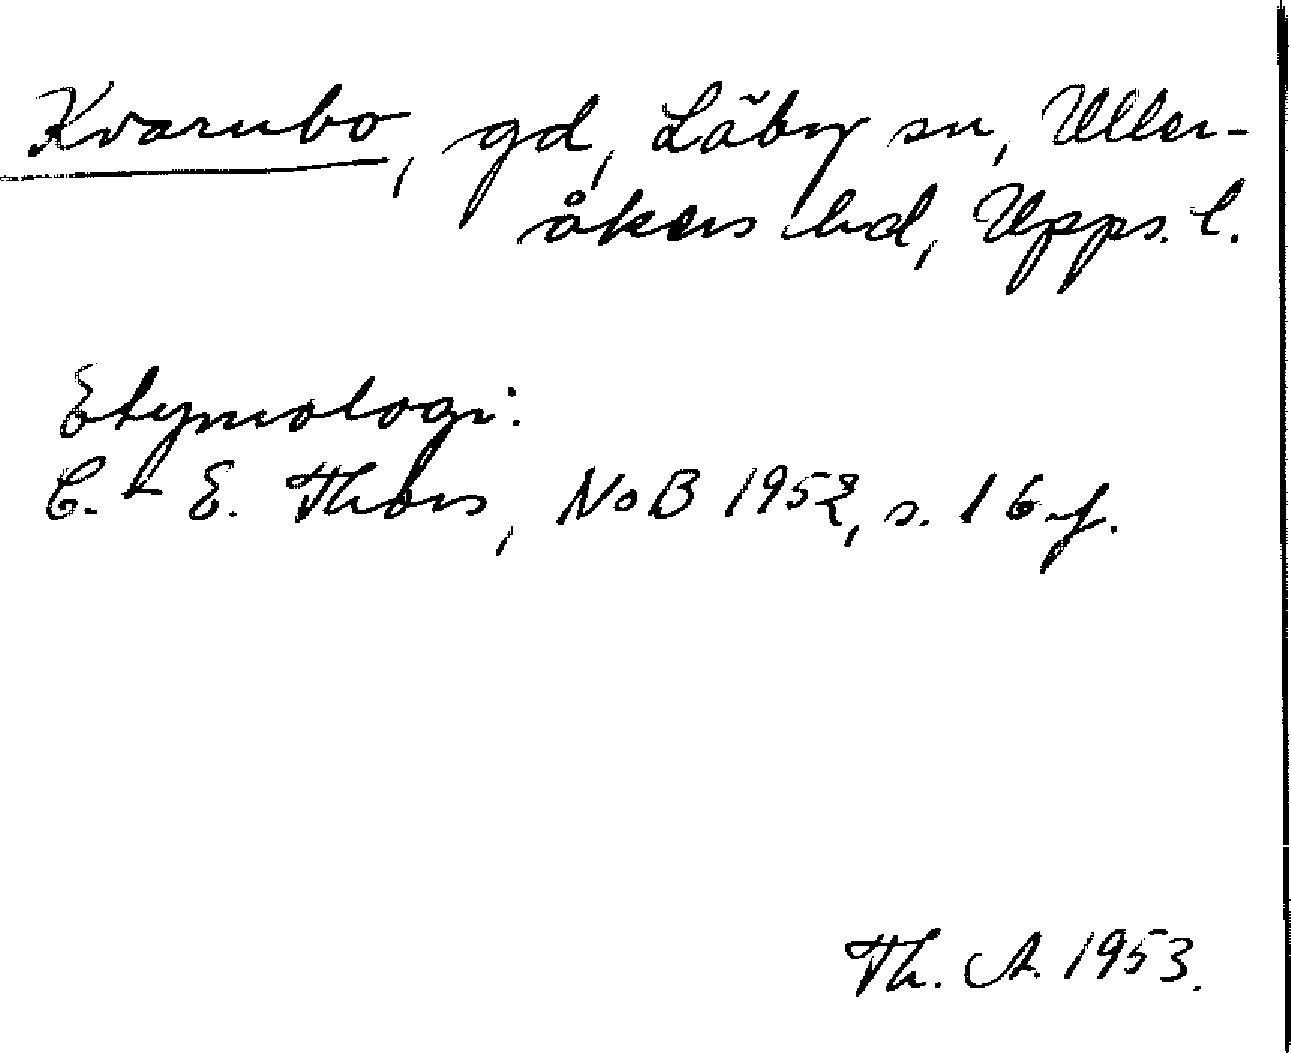 Kvarnbo, gd, Läby sn, Uller-
åkers hd, Upps. l.
Etymologi:
C.-E. Thors, NoB 1952, s. 16 f.
Th. A. 1953.